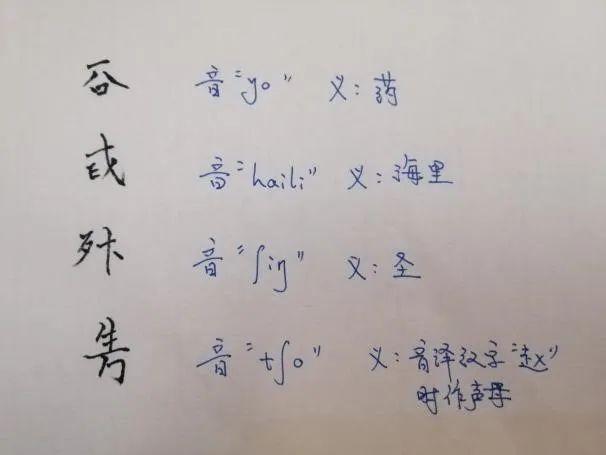 音“yo” 义：药
音“haili” 义：海里
音“ʃiŋ” 义：圣
音“tʃo” 义：音译汉字“赵”
时作声母